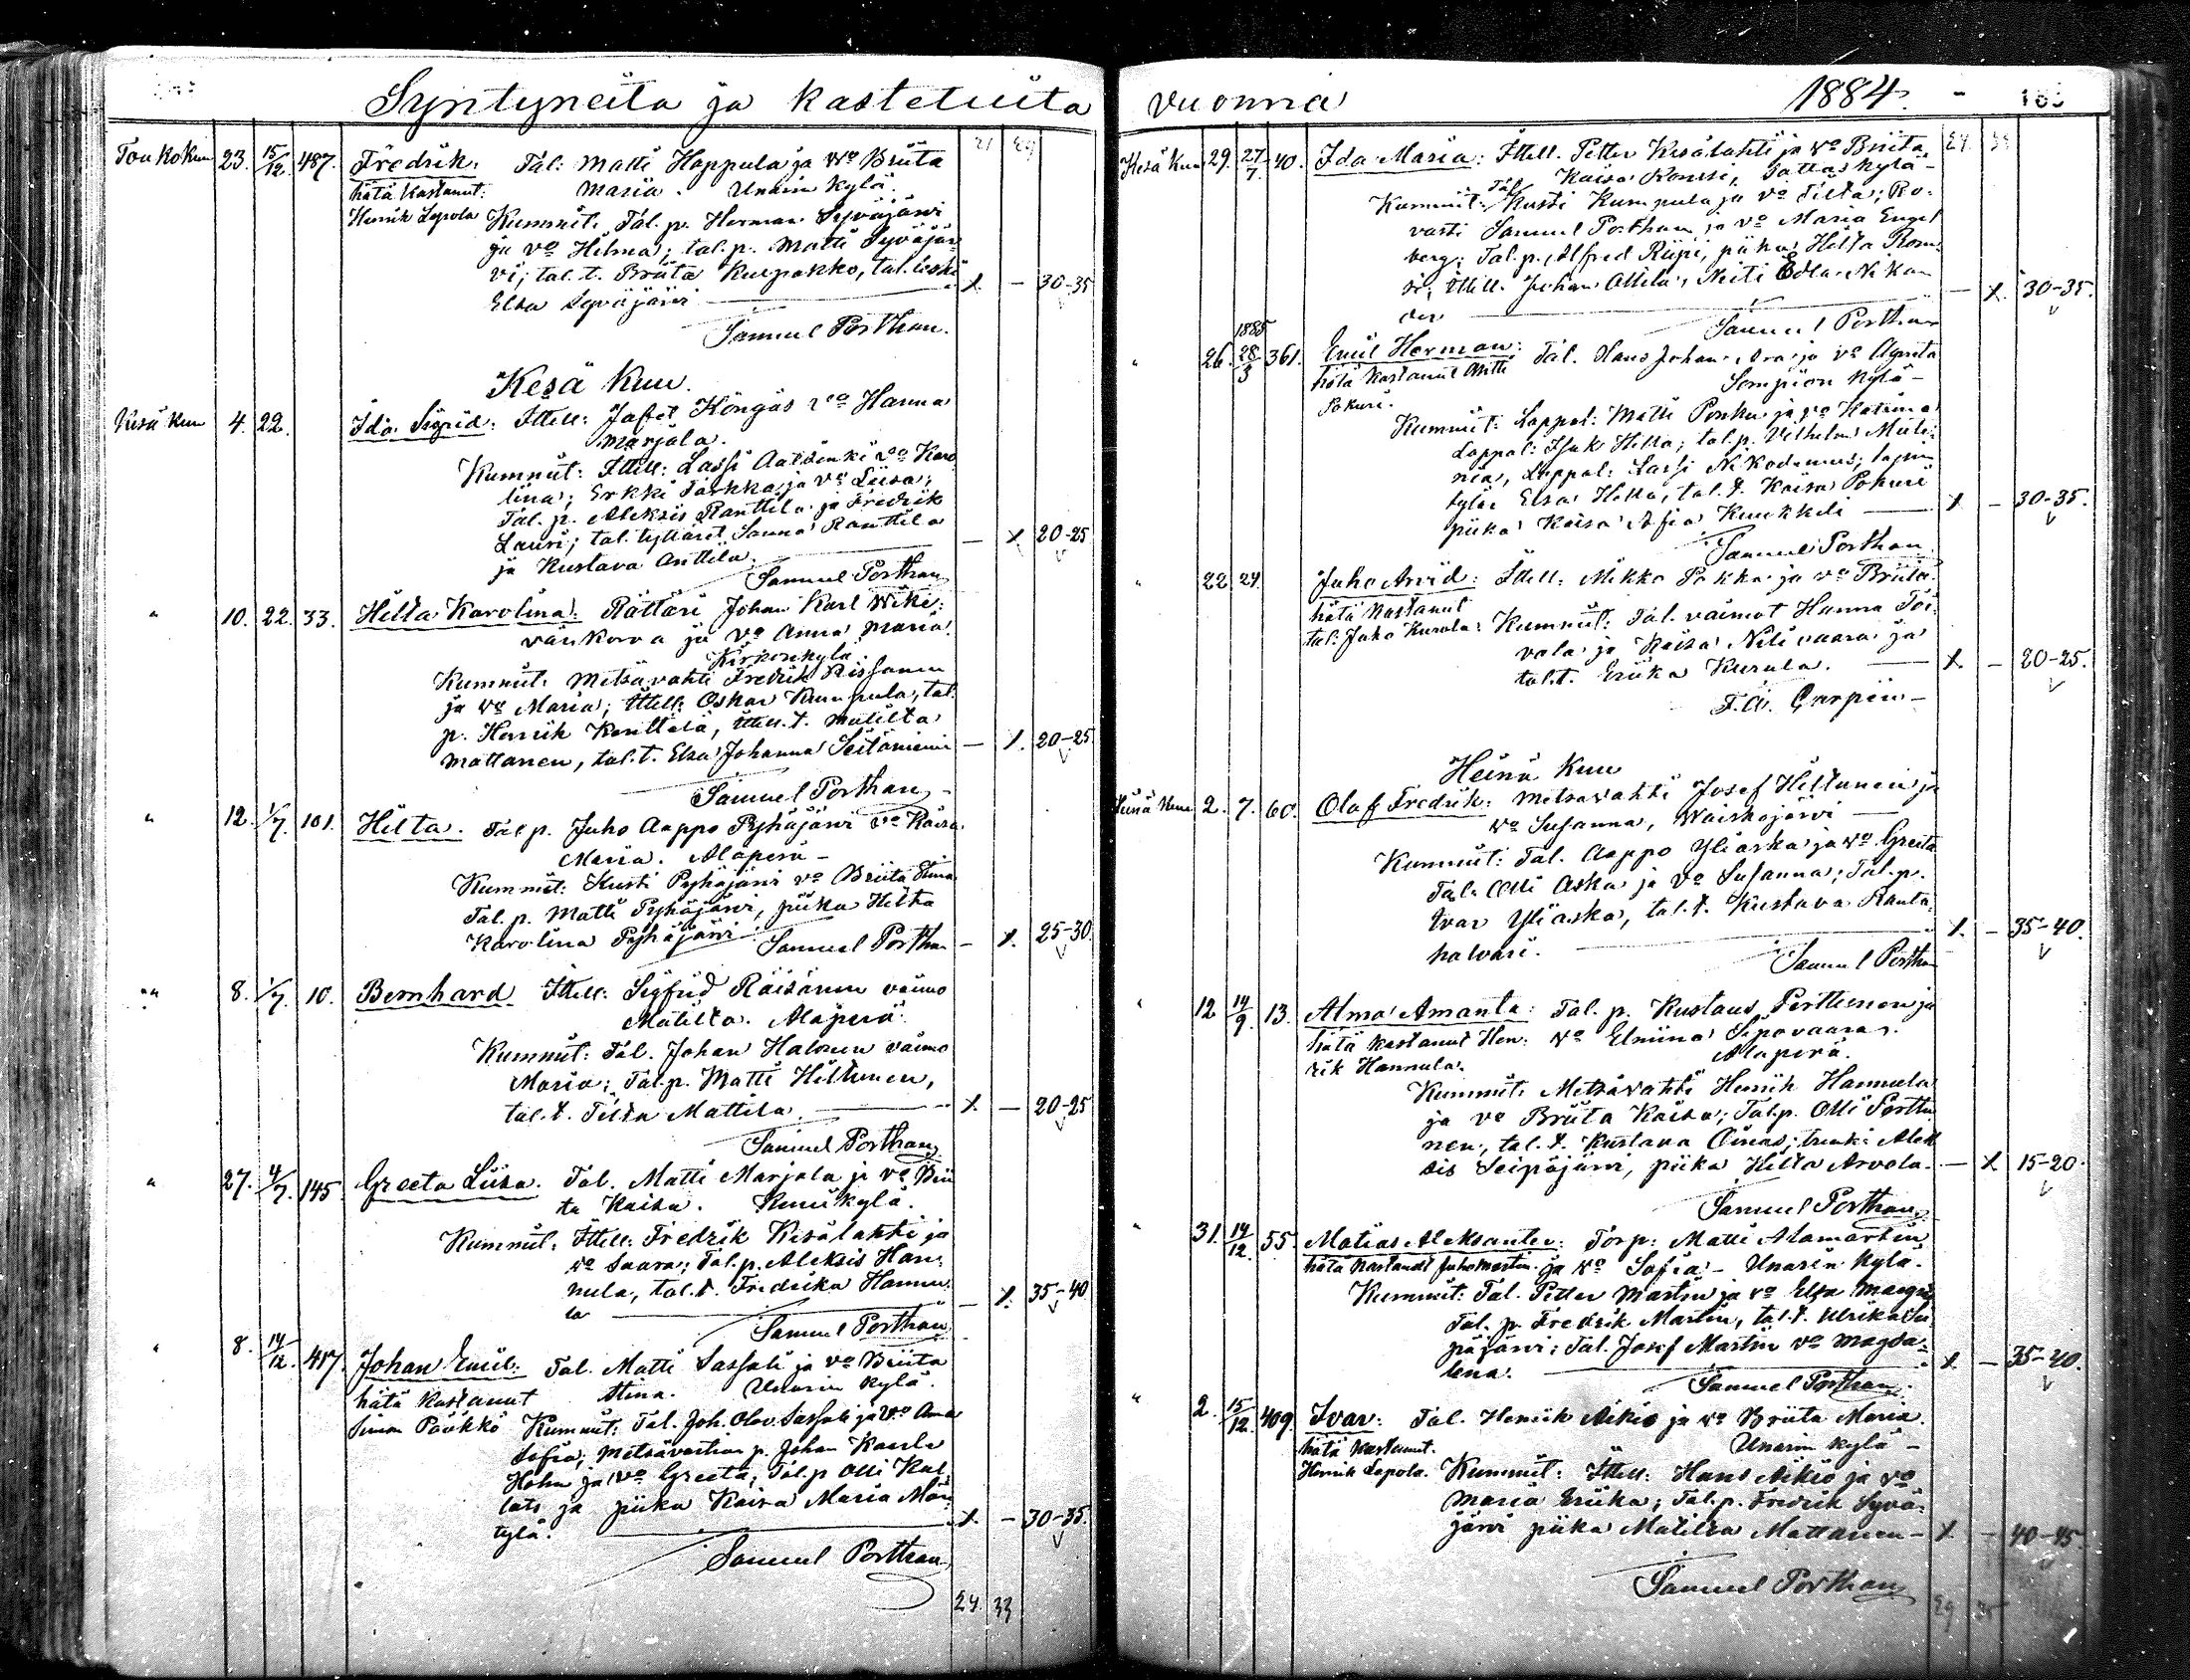 Syntyneitä ja kastetuita
Toukokuu 23. 15/12. 487. Fredrik. Tal: Matti Hoppula ja Wo Briita
hätä kastanut: Maria. Unarin kylä.
Henrik Lepola Kummit: Tal. p. Herman Syväjärvi
ja vo Hilma; tal. p. Matti Syväjär-
vi; tal. t. Briita Kurpakko, tal. leski
Elsa Syväjärvi X. — 30-35
Samuel Porthan.
Kesä Kuu.
Kesä Kuu 4. 22. Ida Sigrid: Ittell: Jafet Köngäs vo Hanna
Marjala.
Kummit: Ittell: Lassi Aaltenki vo Karo
liina; Erkki Tarkka ja vo Liisa;
Tal. p. Aleksis Ranttila ja Fredrik
Lauri; tal. tyttäret Sanna Ranttila
ja Kustava Anttila. — X 20-25
Samuel Porthan
" 10. 22. 33. Hilta Karolina: Rättäri Johan Karl Wike-
vänkorva ja vo Anna Maria.
Kirkonkylä
Kummit: Metsävahti Fredrik Rissanen
ja vo Maria; Ittell: Oskar Kumpula, tal.
p. Henrik Kenttälä, Ittell. t. Matilta
Mattanen, tal. t. Elsa Johanna Seitäniemi — X. 20-25
Samuel Porthan
" 12. 1/7. 101. Hilta. Tal p. Juho Aappo Pyhäjärvi vo Kaisa
Maria. Alaperä -
Kummit: Kusti Pyhäjärvi vo Briita Stina
Tal. p. Matti Pyhäjärvi, piika Hilta
Karolina Pyhäjärvi — X. 25-30.
Samuel Porthan
" 8. 1/7. 10. Bernhard. Ittell: Sigfrid Räisänen vaimo
Matilta. Alaperä.
Kummit: Tal. Johan Halonen vaimo
Maria; Tal. p. Matti Hiltunen,
tal. t. Tilta Mattila. X. — 20-25
Samuel Porthan
" 27. 4/7. 145 Greeta Liisa. Tal. Matti Marjala ja vo Brii
ta Kaisa. kylä.
Kummit: Ittell: Fredrik Kesälahti ja
vo Saara; Tal. p. Aleksis Han-
nula, tal. t. Fredrika Hannu-
la — X. 35-40
Samuel Porthan
" 8. 14/12. 417. Johan Emil: Tal. Matti Sassali ja vo Briita
hätä kastanut Stina. Unarin kylä.
Simon Pöykkö Kummit: Tal. Joh. Olov. Sassali ja vo Anna
Sofia; Metsävartian p. Johan
Hohn ja vo Greeta; Tal. p Olli
ja piika Kaisa Maria Män-
tylä. X. — 30-35.
Samuel Porthan
24. 33
vuonna 1884.
Hesä Kuu 29. 27/7. 40. Ida Maria: Ittell. Petter Kesälahti ja vo Briita
Kaisa Sattas kylä -
Kummit: Tal. Kusti Kumpula ja vo Tilta; Ro-
vasti Samuel Porthan ja vo Maria Engel
berg; Tal. p. Alfred Riipi, piika Hilta Rom-
si, Ittell. Johan Attila, Neiti Edla Nikan
der — X. 30-35.
Samuel Porthan
" 26. 1885 28/3 361. Emil Herman: Tal. Hans Johan ja vo Agneta
hätä kastanut Antti Sompion kylä -
Pokuri.
Kummit: Lappal: Matti Ponku ja vo Katriina
Lappal: Isak Hetta; tal. p. Vilhelm
Lappal: Lassi Nikodemus;
Elsa Hetta, tal. t. Kaisa Pokuri
piika Kaisa Sofia Kuukkeli X — 30-35.
Samuel Porthan
" 22 24. Juho Arvid: Ittell: Mikko Pokka ja vo Briita.
hätä kastanut
tal: Juho Kurula: Kummit: Tal. vaimot Hanna Toi-
vola ja Kaisa Nilivaara ja
tal. t. Eriika Kurula. X. — 20-25.
F. A. Carpén -
Heinä Kuu
Heinä Kuu 2. 7. 60. Olaf Fredrik: Metsävahti Josef Hiltunen ja
vo Susanna, Waiskojärvi
Kummit: Tal. Aappo Yliaska ja vo Greeta
Tal. Olli Aska ja vo Susanna; Tal. p.
Ivar Yliaska, tal. t. Kustava Ranta-
halvari. X. — 35-40.
Samuel Porthan
" 12. 14/9. 13. Alma Amanta: Tal. p. Kustaus Perttunen ja
hätä kastanut Hen- vo Elmiina Sipovaara.
rik Hannula. Alaperä.
Kummit: Metsävahti Henrik Hannula
ja vo Briita Kaisa; Tal. p. Olli Perttu
nen, tal. t. Kustava Oinas; Alek
sis Seipäjärvi, piika Hilta Arvola. — X. 15-20.
Samuel Porthan
" 31. 14/12. 55. Matias Aleksanter: Torp: Matti Alamartin
hätä kastanut Juho Martin. ja vo Sofia - Unarin kylä.
Kummit: Tal. Petter Martin ja vo Elsa Marg:
Tal. p. Fredrik Martin, tal. t. Ulrika Sei
päjärvi; Tal. Josef Martin vo Magda-
lena. X. — 35-40.
Samuel Porthan.
" 2. 15/12. 409. Ivar: Tal. Henrik Aikio ja vo Briita Maria.
hätä kastanut. Unarin kylä -
Henrik Lepola. Kummit: Ittell: Hans Aikio ja vo
Maria Eriika; Tal. p. Fredrik Syvä-
järvi piika Matilta Mattanen - X. — 40-45.
Samuel Porthan